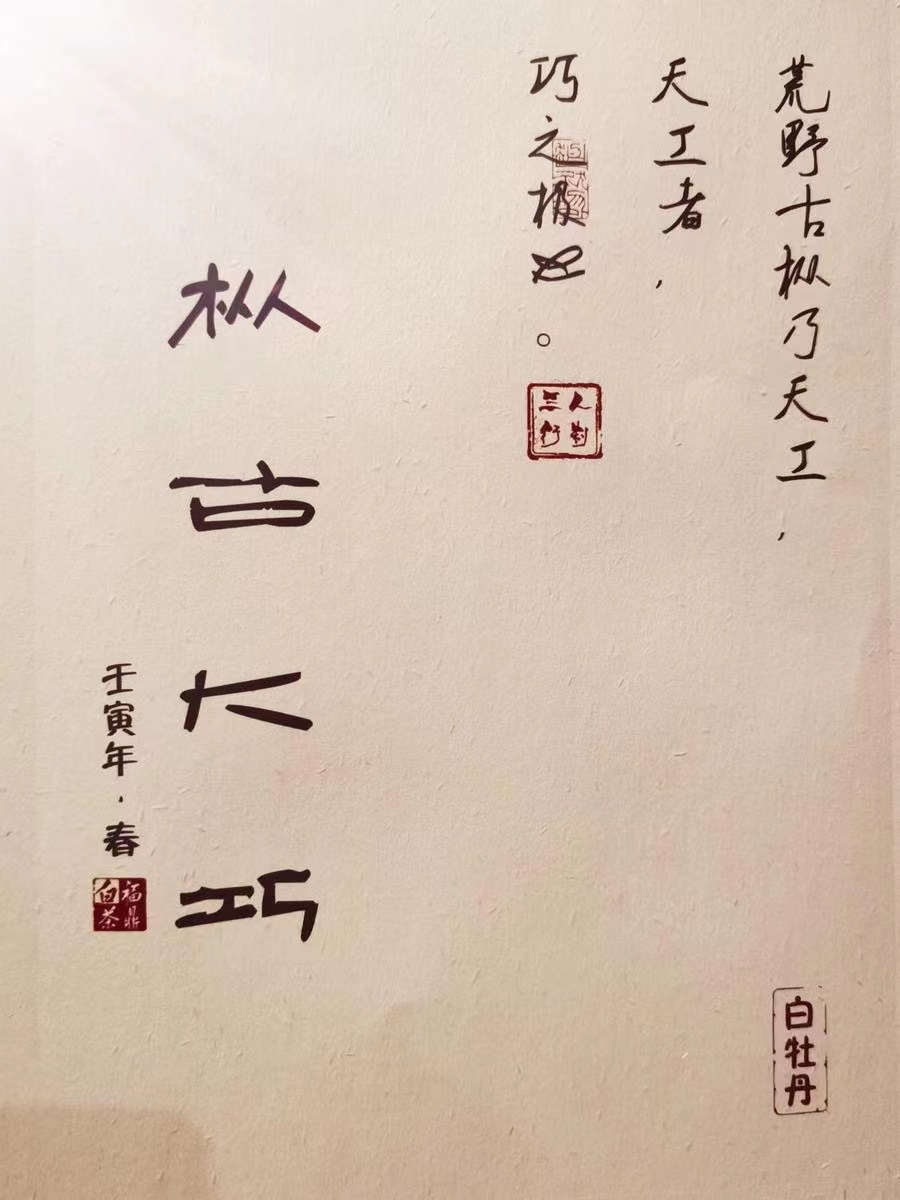 荒野古枞乃天工，
天工者，
巧之极也。
枞古大巧
壬寅年·春
福鼎
白茶
白牡丹